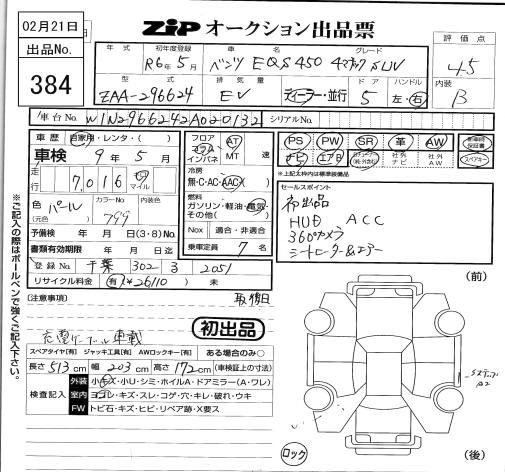 02月21日
出品No.
384
ZIP オークション出品票
年式 初年度登録 車名 グレード
R6年5月 ベンツ EQS450 4マチック SUV
評価点
4.5
型式 排気量 ドア ハンドル
ZAA-296624 EV ディーラー・並行 5 左・右
内装
B
車台No. W1N2966242A020132 シリアルNo.
車歴 自家用・レンタ・( )
車検 9年5月
走行 7,016 km マイル
色(元色) パール カラーNo. 799 内装色
予備検 年 月 日(3・8)Mo.
書類有効期限 年 月 日
登録No. 千葉 302 3 2051
リサイクル料金 有(¥26110) 未
フロア コラム インパネ AT MT 速
冷房 無・C・AC・AAC
燃料 ガソリン・軽油・電気・その他( )
Nox 適合・非適合
乗車定員 7名
PS PW SR 革 AW
ナビ エアB 社外ナビ 社外AW
スペアキー
*上記太枠内は標準装備品
セールスポイント
初出品
HUD ACC
360°カメラ
シートヒーター&エアー
※ご記入の際はボールペンで強くご記入下さい。
(注意事項)
取説日
充電ケーブル車載
初出品
スペアタイヤ[有] ジャッキ工具[有] AWロックキー[有] ある場合のみ○
長さ 513cm 幅 203cm 高さ 172cm (車検証上の寸法)
検査記入
外装 小キズ・小U・シミ・ホイルA・ドアミラー(A・ワレ)
室内 ヨゴレ・キズ・スレ・コゲ・穴・キレ・破れ・ウキ
FW トビ石・キズ・ヒビ・リペア跡・X要ス
(前)
A2
(後)
ロック